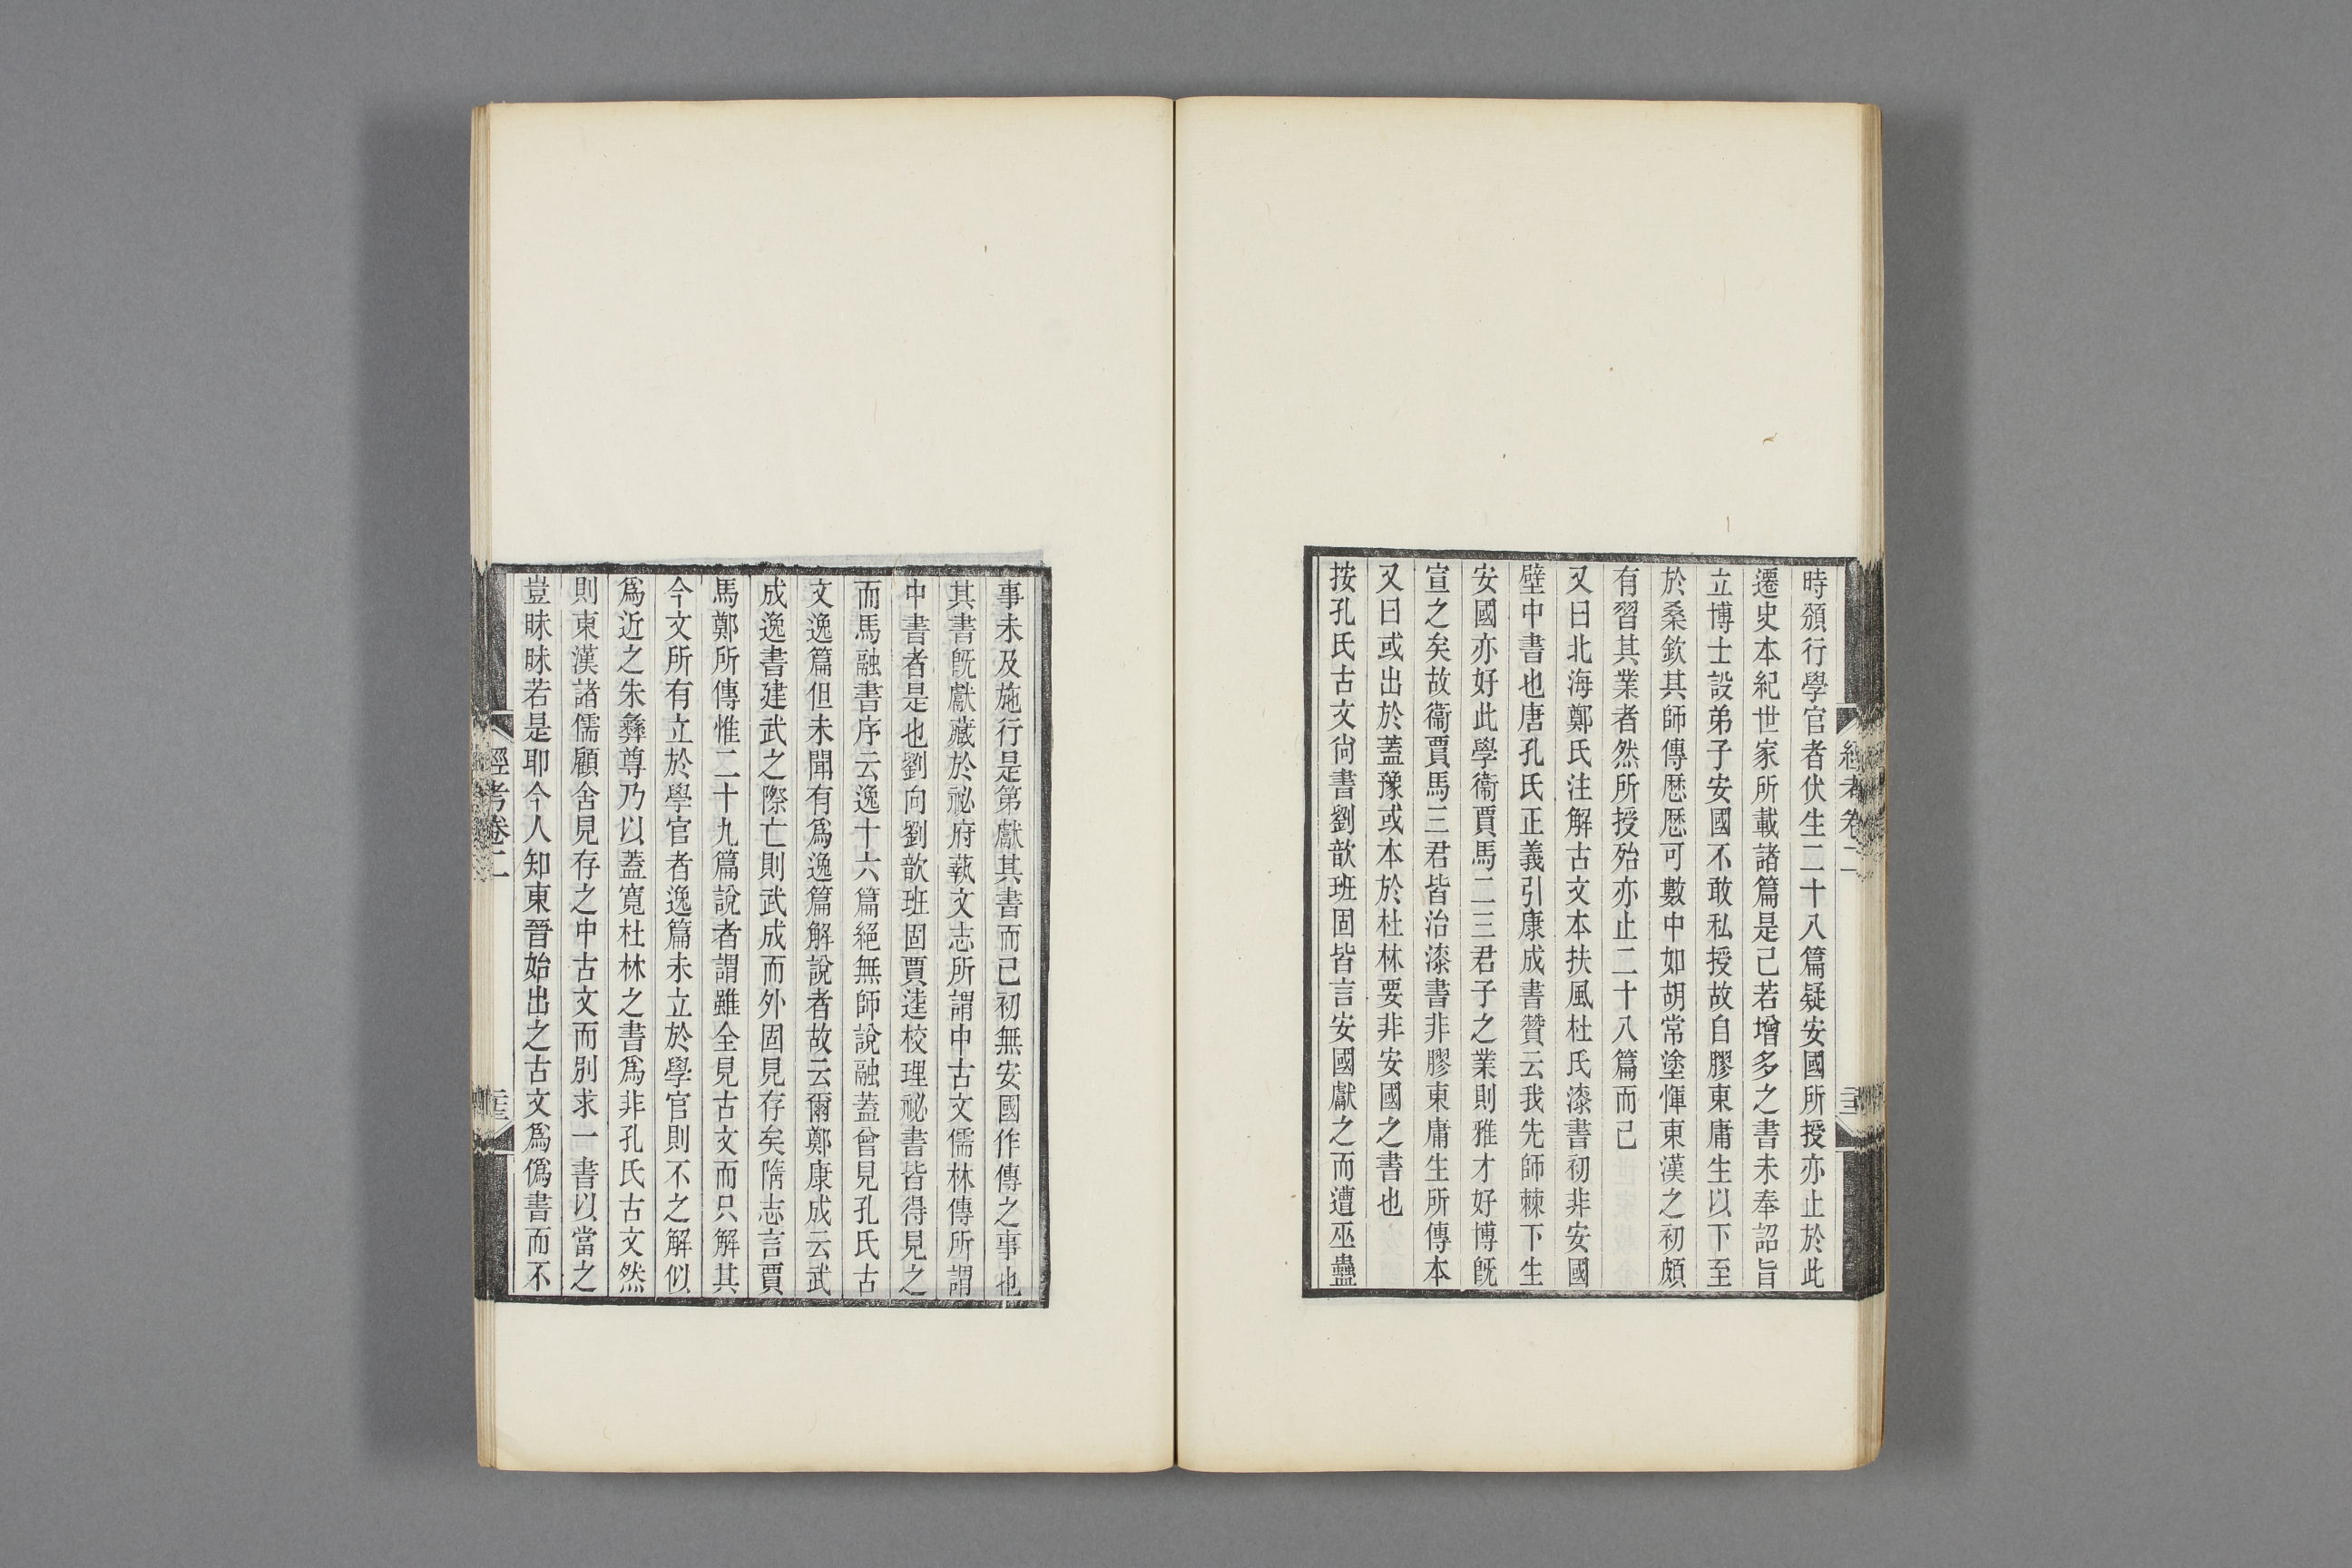 時頒行學官者伏生二十八篇疑安國所授亦止於此
遷史本紀世家所載諸篇是已若增多之書未奉詔旨
立博士設弟子安國不敢私授故自膠東庸生以下至
於桑欽其師傳歷歷可數中如胡常塗惲東漢之初頗
有習其業者然所授殆亦止二十八篇而已
又曰北海鄭氏注解古文本扶風杜氏漆書初非安國
壁中書也唐孔氏正義引康成書贊云我先師棘下生
安國亦好此學衞賈馬二三君子之業則雅才好博旣
宣之矣故衞賈馬三君皆治漆書非膠東庸生所傳本
又曰或出於蓋豫或本於杜林要非安國之書也
按孔氏古文尙書劉歆班固皆言安國獻之而遭巫蠱
經考卷二
事未及施行是第獻其書而已初無安國作傳之事也
其書旣獻藏於祕府蓺文志所謂中古文儒林傳所謂
中書者是也劉向劉歆班固賈逵校理祕書皆得見之
而馬融書序云逸十六篇絕無師說融蓋曾見孔氏古
文逸篇但未聞有爲逸篇解說者故云爾鄭康成云武
成逸書建武之際亡則武成而外固見存矣隋志言賈
馬鄭所傳惟二十九篇說者謂雖全見古文而只解其
今文所有立於學官者逸篇未立於學官則不之解似
爲近之朱彝尊乃以蓋寬杜林之書爲非孔氏古文然
則東漢諸儒顧舍見存之中古文而別求一書以當之
豈昧昧若是耶今人知東晉始出之古文爲僞書而不
經考卷二